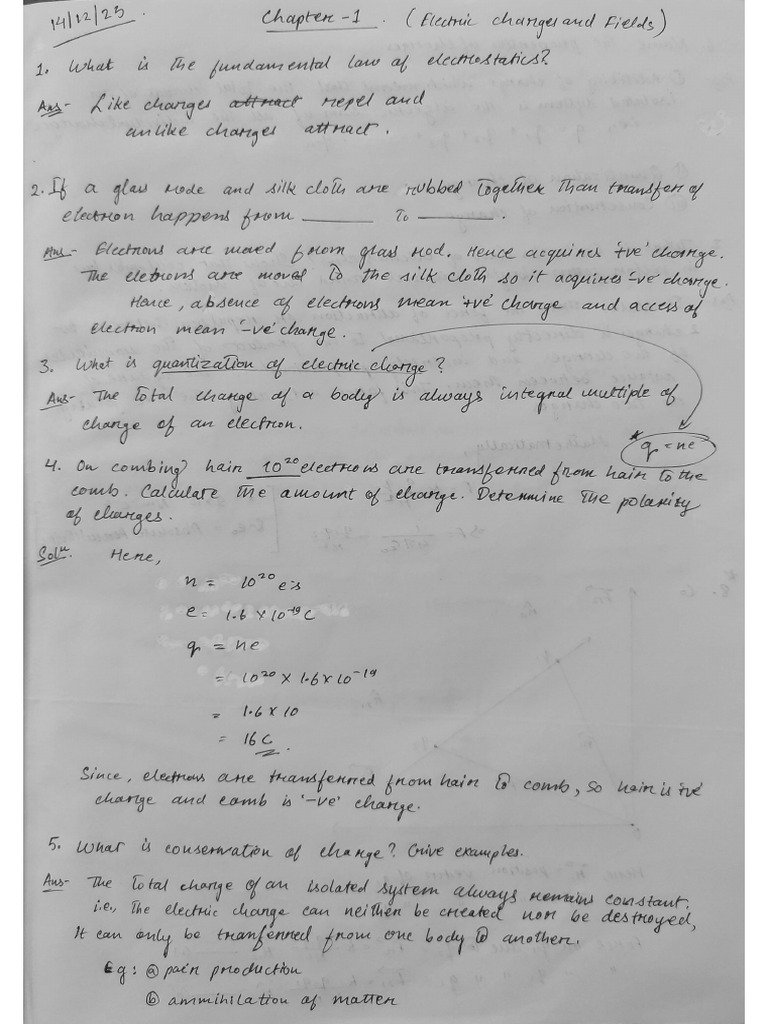 14/12/23.
Chapter-1. (Electric charges and Fields)
1. What is the fundamental law of electrostatics?
Ans- Like charges attract repel and
unlike charges attract.
2. If a glass rode and silk cloth are rubbed together than transfer of
electron happens from ______ to ______.
Ans- Electrons are moved from glass rod. Hence acquires '+ve' charge.
The eletrons are moved to the silk cloth so it acquires '-ve' charge.
Hence, absence of electrons mean '+ve' charge and access of
electron mean '-ve' charge.
3. What is quantization of electric charge?
Ans- The total charge of a body is always integral multiple of
charge of an electron.
* q = ne
4. On combing hair 10²⁰ electrons are transferred from hair to the
comb. Calculate the amount of charge. Determine the polarity
of charges.
Solⁿ. Here,
n = 10²⁰ e's
e = 1.6 × 10⁻¹⁹ C
q = ne
= 10²⁰ × 1.6 × 10⁻¹⁹
= 1.6 × 10
= 16 C.
Since, electrons are transferred from hair to comb, so hair is '+ve'
charge and comb is '-ve' charge.
5. What is conservation of charge? Give examples.
Ans- The total charge of an isolated system always remains constant.
i.e., The electric charge can neither be created nor be destroyed,
It can only be tranferred from one body to another.
Eg: ⓐ pair production
ⓑ ammihilation of matter